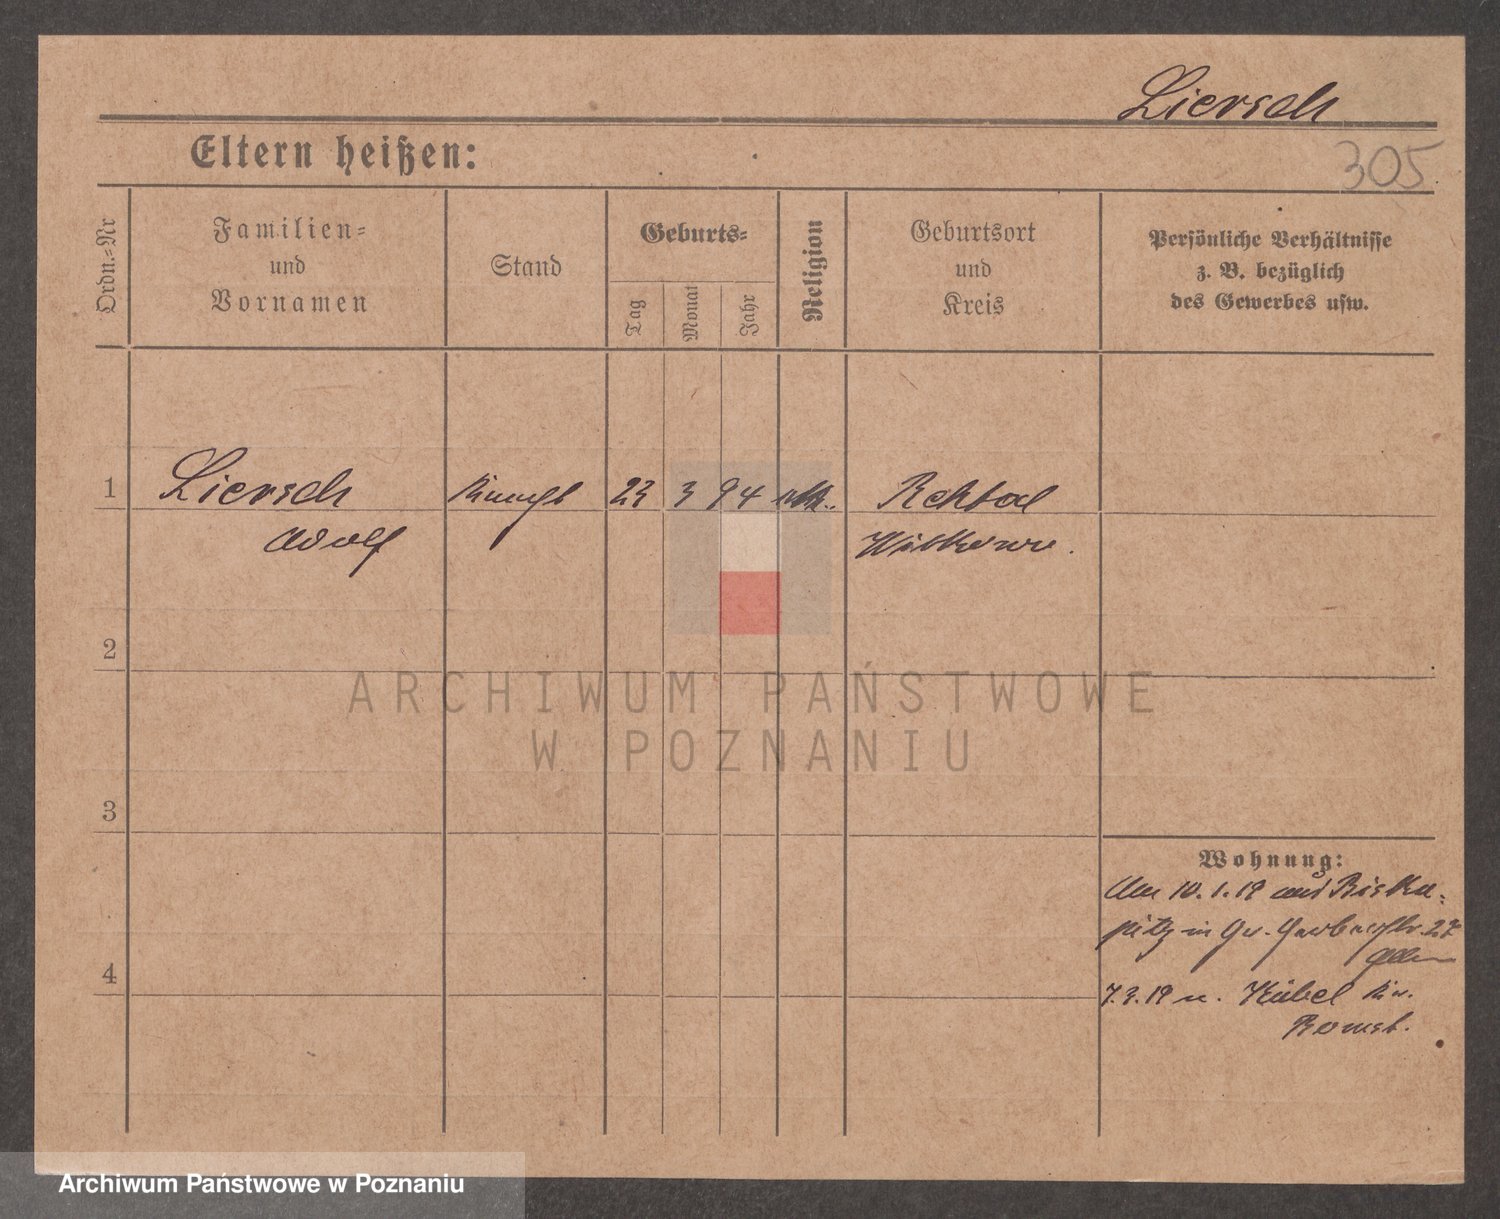 Liersch
Eltern heißen:
305.
Ordn.-Nr
Familien-
und
Vornamen
Stand
Geburts-
Tag
Monat
Jahr
Religion
Geburtsort
und
Kreis
Persönliche Verhältnisse
z. B. bezüglich
des Gewerbes usw.
1
Liersch
23
3
94
Rehtal
Adolf
Witkowo.
2
ARCHIWUM PAŃSTWOWE
W POZNANIU
3
Wohnung:
Am 10.1.19 aus Bisku-
pitz in Gr. Gerberstr. 27
4
7.3.19 n. Kübel Kr.
Bomst.
Archiwum Państwowe w Poznaniu